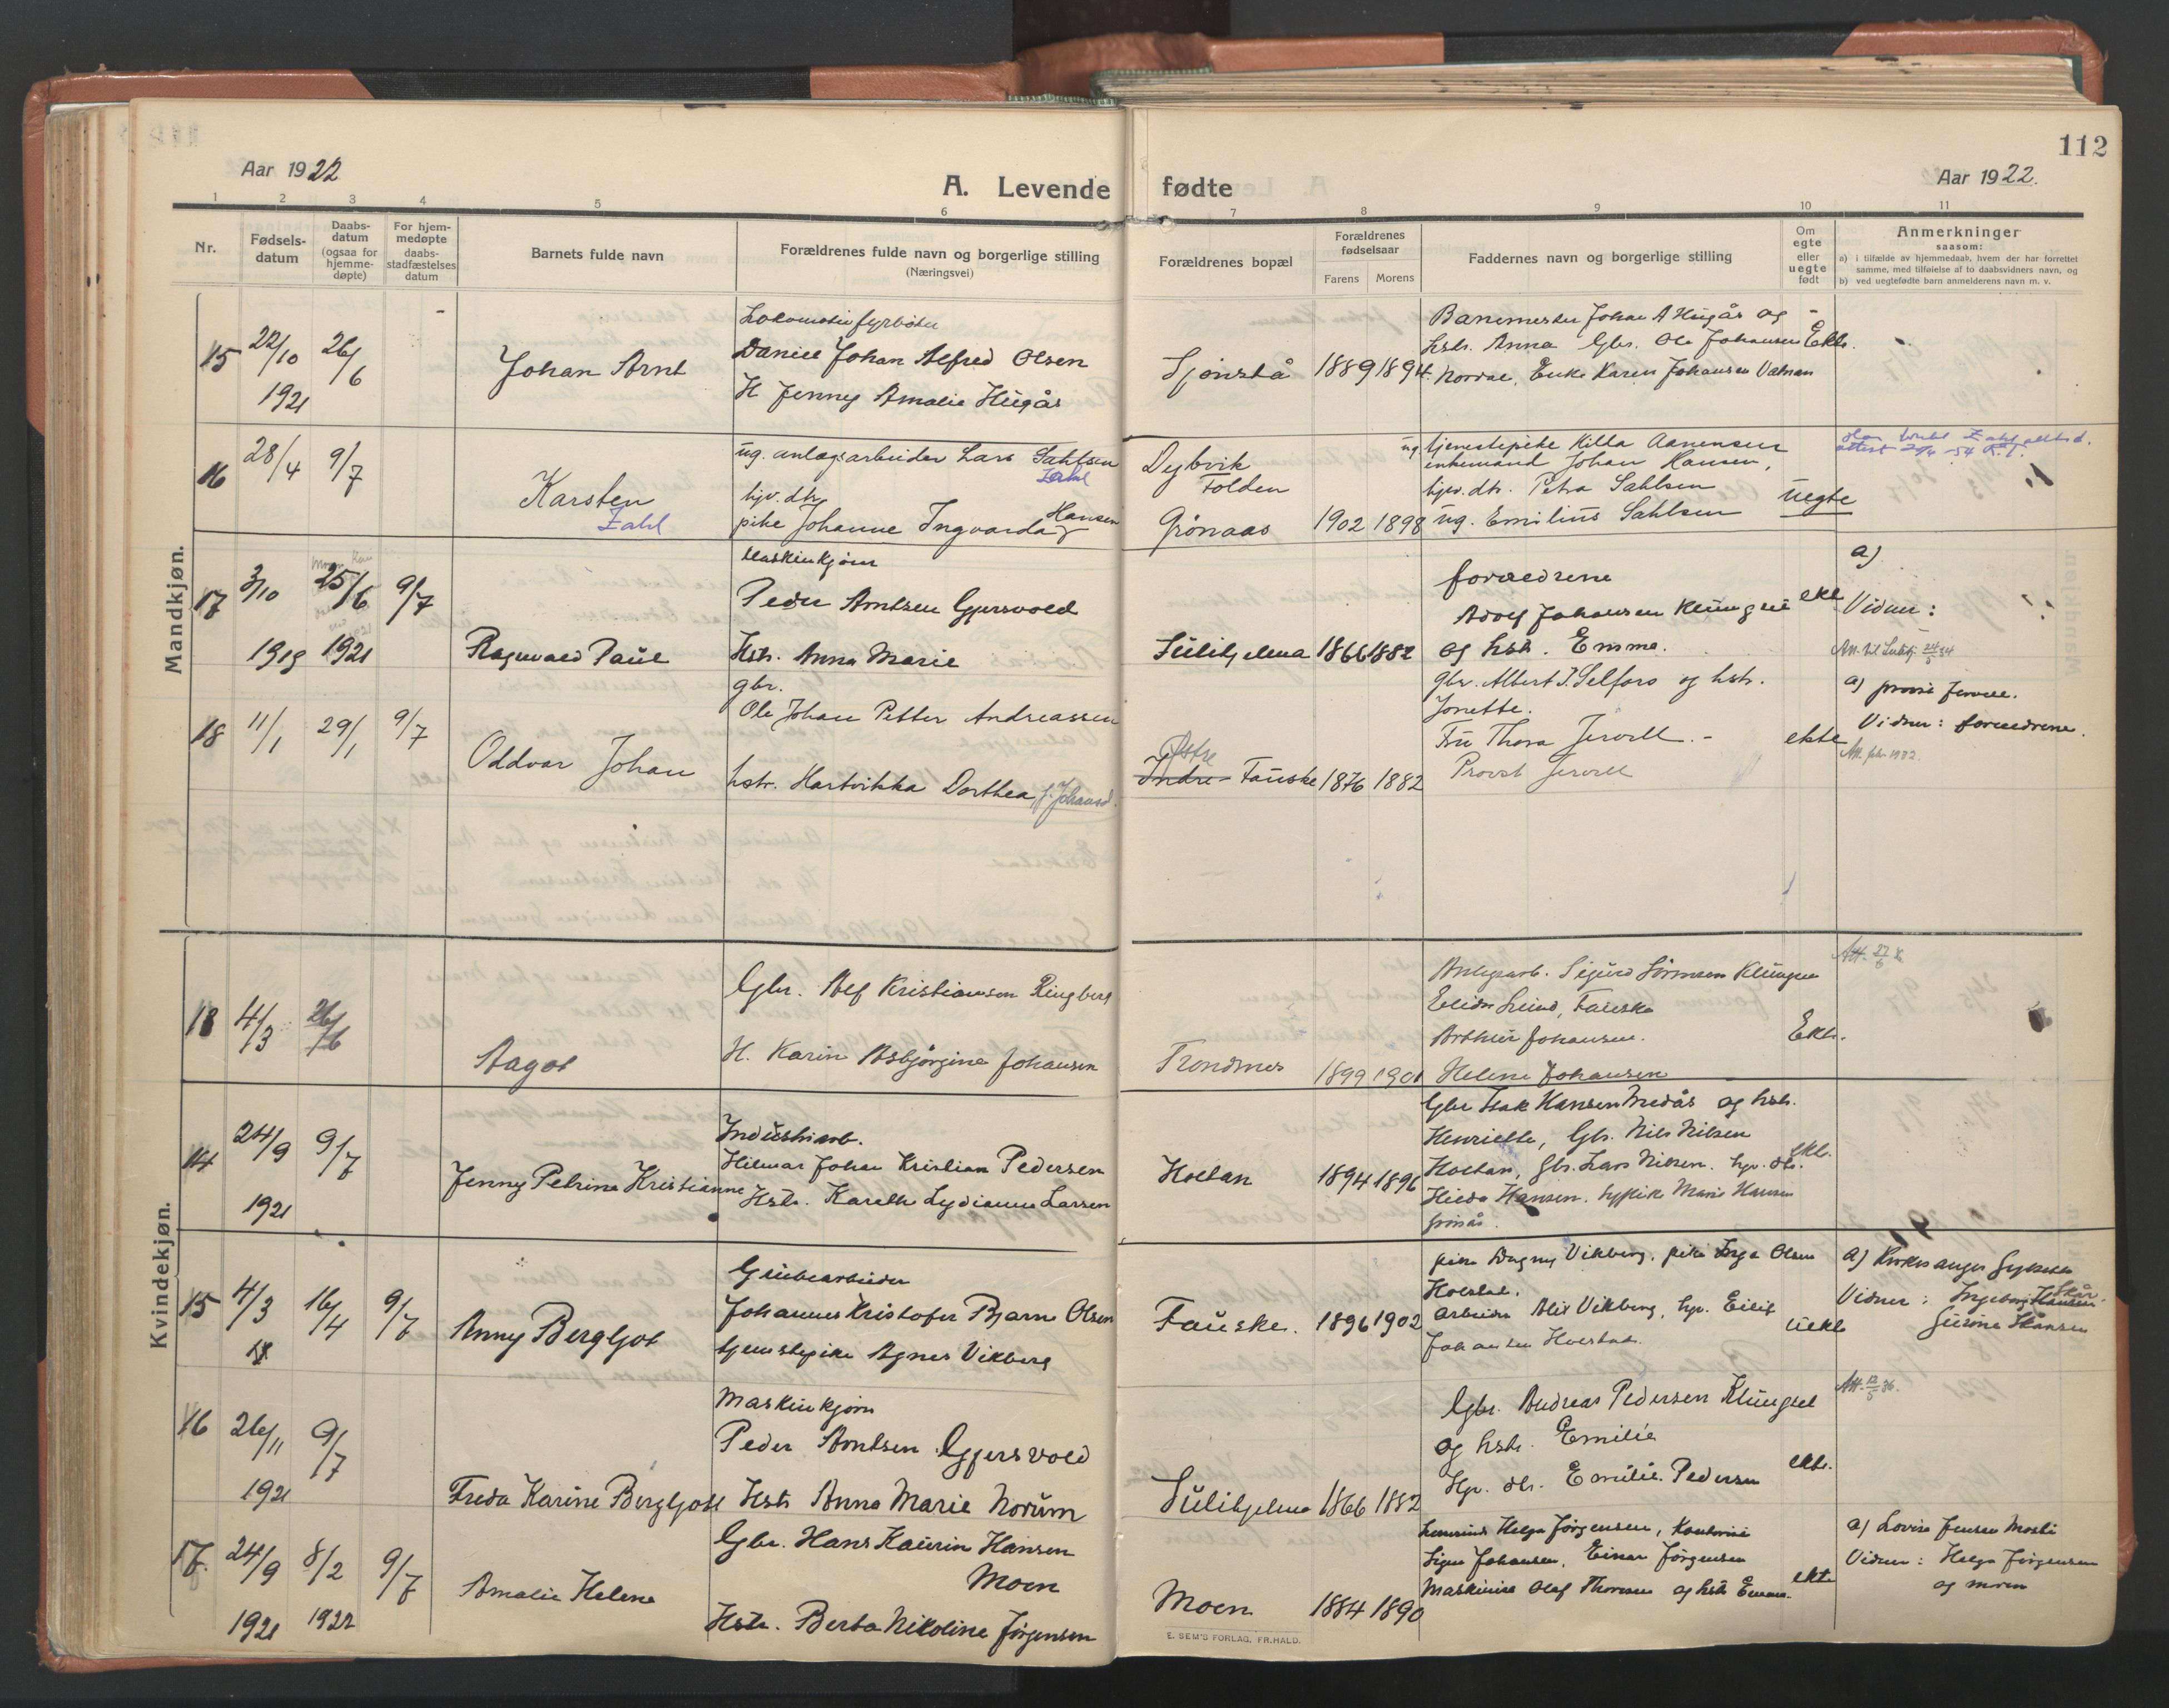 112
Aar 1922
A. Levende
fødte
Aar 1922.
1 2 3 4 5 6 7 8 9 10 11
Nr.
Fødsels-
datum
Daabs-
datum
(ogsaa for
hjemme-
døpte)
For hjem-
medøpte
daabs-
stadfæstelses
datum
Barnets fulde navn
Forældrenes fulde navn og borgerlige stilling
(Næringsvei)
Forældrenes bopæl
Forældrenes
fødselsaar
Farens Morens
Faddernes navn og borgerlige stilling
Om
egte
eller
uegte
født
Anmerkninger
saasom:
a) i tilfælde av hjemmedaab, hvem der har forrettet
samme, med tilføielse af to daabsvidners navn, og
b) ved uegtefødte barn anmelderens navn m. v.
Mandkjøn.
15
22/10
1921
26/6
Johan Arnt
Lokomotivfyrbøter
Daniel Johan Alfred Olsen
H Jenny Amalie Hügås
Sjønstå
1889 1894
Banemester Johan A Hügås og
hstr. Anna Gbr. Ole Johansen
Nordal, Enke Karen Johansen Vatnan
Ekte.
16
28/4
9/7
Karsten
Zahl
ug. anlægsarbeider Lars Sahlsen
Zahl
hjv. dtr.
pike Johanne Ingvarda Hansen
Dybvik
Folden
Grønaas
1902 1898
ug tjenestepike Hilla Aanensen
enkemand Johan Hansen,
hjv. dtr. Petra Sahlsen
ug. Emilius Sahlsen
uegte
17
3/10
1919
25/6
1921
9/7
Ragnvald Paul
Maskinkjører
Peder Arntsen Gjersvold
Hstr. Anna Marie
Sulitjelma
1866 1882
forældrene
Adolf Johansen Klungset
og hstr. Emma.
ekte
a)
Vidner:
18
11/1
29/1
9/7
Oddvar Johan
gbr.
Ole Johan Petter Andreassen
hstr. Hartvikka Dorthea, f. Johansd.
Østre
Indre-Fauske
1876 1882
gbr. Albert J. Selfors og hstr.
Jonette.
Fru Thora Jervell.
Provst Jervell
ekte
a) provst Jervell.
Vidner: forældrene.
Att. febr. 1932.
Kvindekjøn.
13
4/3
26/6
Aagot
Gbr. Alf Kristiansen Ringberg
H. Karin Asbjørgine Johansen
Trondnes
1899 1901
Anlegsarb. Sigurd Sørensen Klungset
Arthur Johansen.
Helene Johansen
Ekte.
14
24/9
1921
9/7
Jenny Petrine Kristianne
Industriarb.
Hilmar Johan Kristian Pedersen
Hstr. Kareth Lydianna Larsen
Holtan
1894 1896
Gbr Isak Hansen Nedås og hstr.
Henriette, Gbr. Nils Nilsen
Holtan, Gbr. Lars Nilsen. hjv. dtr.
Hilda Hansen, Marie Hansen
ekte.
15
4/3
16/4
9/7
Anny Bergljot
Grubearbeider
Johannes Kristofer Bjarne Olsen
tjenestepike Agnes Vikberg
Fauske.
1896 1902
pike Dagny Vikberg, pike Inga Olsen
Holstad.
Arbeider Alix Vikberg, hjv. Eilif
Johansen Holstad.
uekte
a) Kirkesanger
Vidner: Ingeborg Hansen
Skår.
16
26/11
1921
9/7
Freda Karine Bergljot
Maskinkjører
Peder Arntsen Gjersvold
Hstr Anna Marie Norum
Sulitjelma
1866 1882
Gbr. Andreas Pedersen Klungset
og hstr. Emilie
Hjv. dtr. Emilie Pedersen
ekte.
17.
24/9
1921
8/2
1922
9/7
Amalie Helene
Gbr. Hans Kaurin Hansen
Moen
Hstr. Berta Nikoline Jørgensen
Moen
1884 1890
Helga Jørgensen,
Signe Johansen, Einar Jørgensen
Maskinist Olaf Thoresen og hstr Emma.
ekte
a) Lovise Jensen Mosti
Vidner: Helga Jørgensen
og moren
E. SEM'S FORLAG, FR.HALD.